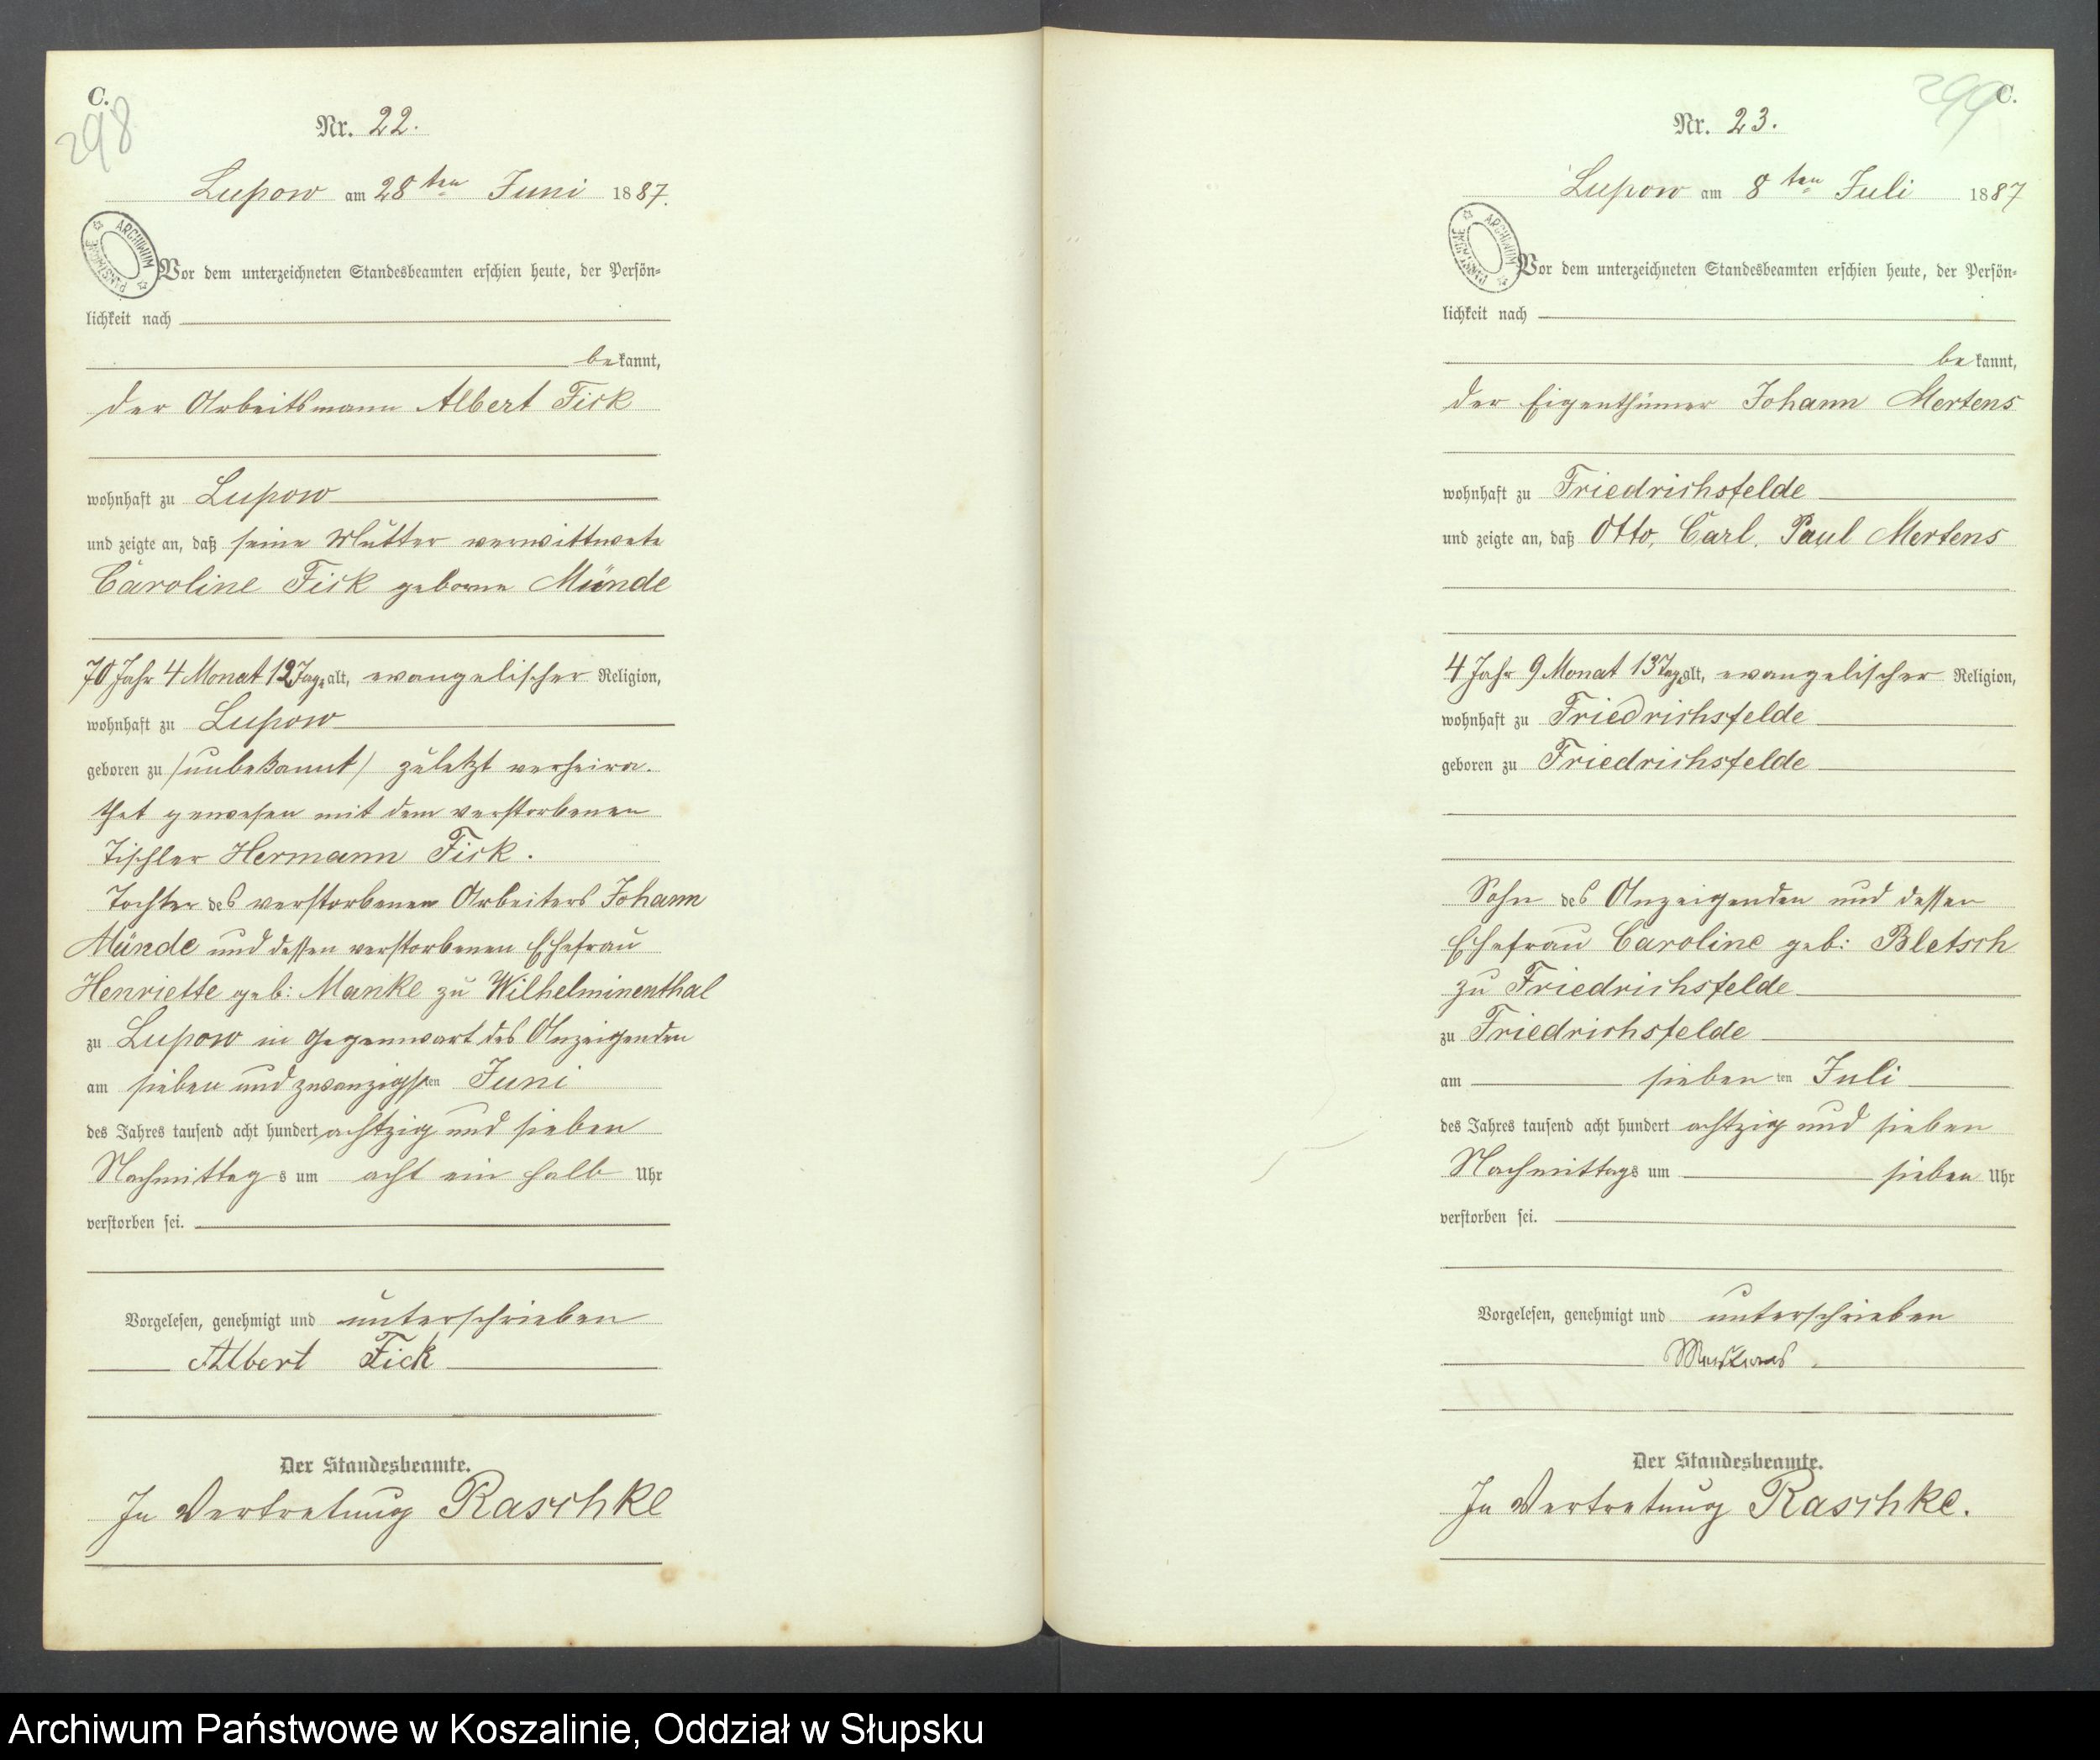 C.
298
Nr. 22.
Lupow am 28ten Juni 1887.
ARCHIWUM PAŃSTWOWE
Vor dem unterzeichneten Standesbeamten erschien heute, der Persön-
lichkeit nach
bekannt,
der Arbeitsmann Albert Fick
wohnhaft zu Lupow
und zeigte an, daß seine Mutter verwittwete
Caroline Fick geborne Münde
70 Jahr 4 Monat 12 Tage alt, evangelischer Religion,
wohnhaft zu Lupow
geboren zu /unbekannt/ zuletzt verheira-
thet gewesen mit dem verstorbenen
Tischler Hermann Fick.
Tochter des verstorbenen Arbeiters Johann
Münde und dessen verstorbenen Ehefrau
Henriette geb: Manke zu Wilhelminenthal
zu Lupow in Gegenwart des Anzeigenden
am sieben und zwanzigsten Juni
des Jahres tausend acht hundert achtzig und sieben
Nachmittags um acht ein halb Uhr
verstorben sei.
Vorgelesen, genehmigt und unterschrieben
Albert Fick
Der Standesbeamte.
In Vertretung Raschke
299
C.
Nr. 23.
Lupow am 8ten Juli 1887
ARCHIWUM PAŃSTWOWE
Vor dem unterzeichneten Standesbeamten erschien heute, der Persön-
lichkeit nach
bekannt,
der Eigenthümer Johann Mertens
wohnhaft zu Friedrichsfelde
und zeigte an, daß Otto, Carl, Paul Mertens
4 Jahr 9 Monat 13 Tage alt, evangelischer Religion,
wohnhaft zu Friedrichsfelde
geboren zu Friedrichsfelde
Sohn des Anzeigenden und dessen
Ehefrau Caroline geb: Bletsch
zu Friedrichsfelde
zu Friedrichsfelde
am siebenten Juli
des Jahres tausend acht hundert achtzig und sieben
Nachmittags um sieben Uhr
verstorben sei.
Vorgelesen, genehmigt und unterschrieben
Der Standesbeamte.
In Vertretung Raschke.
Archiwum Państwowe w Koszalinie, Oddział w Słupsku